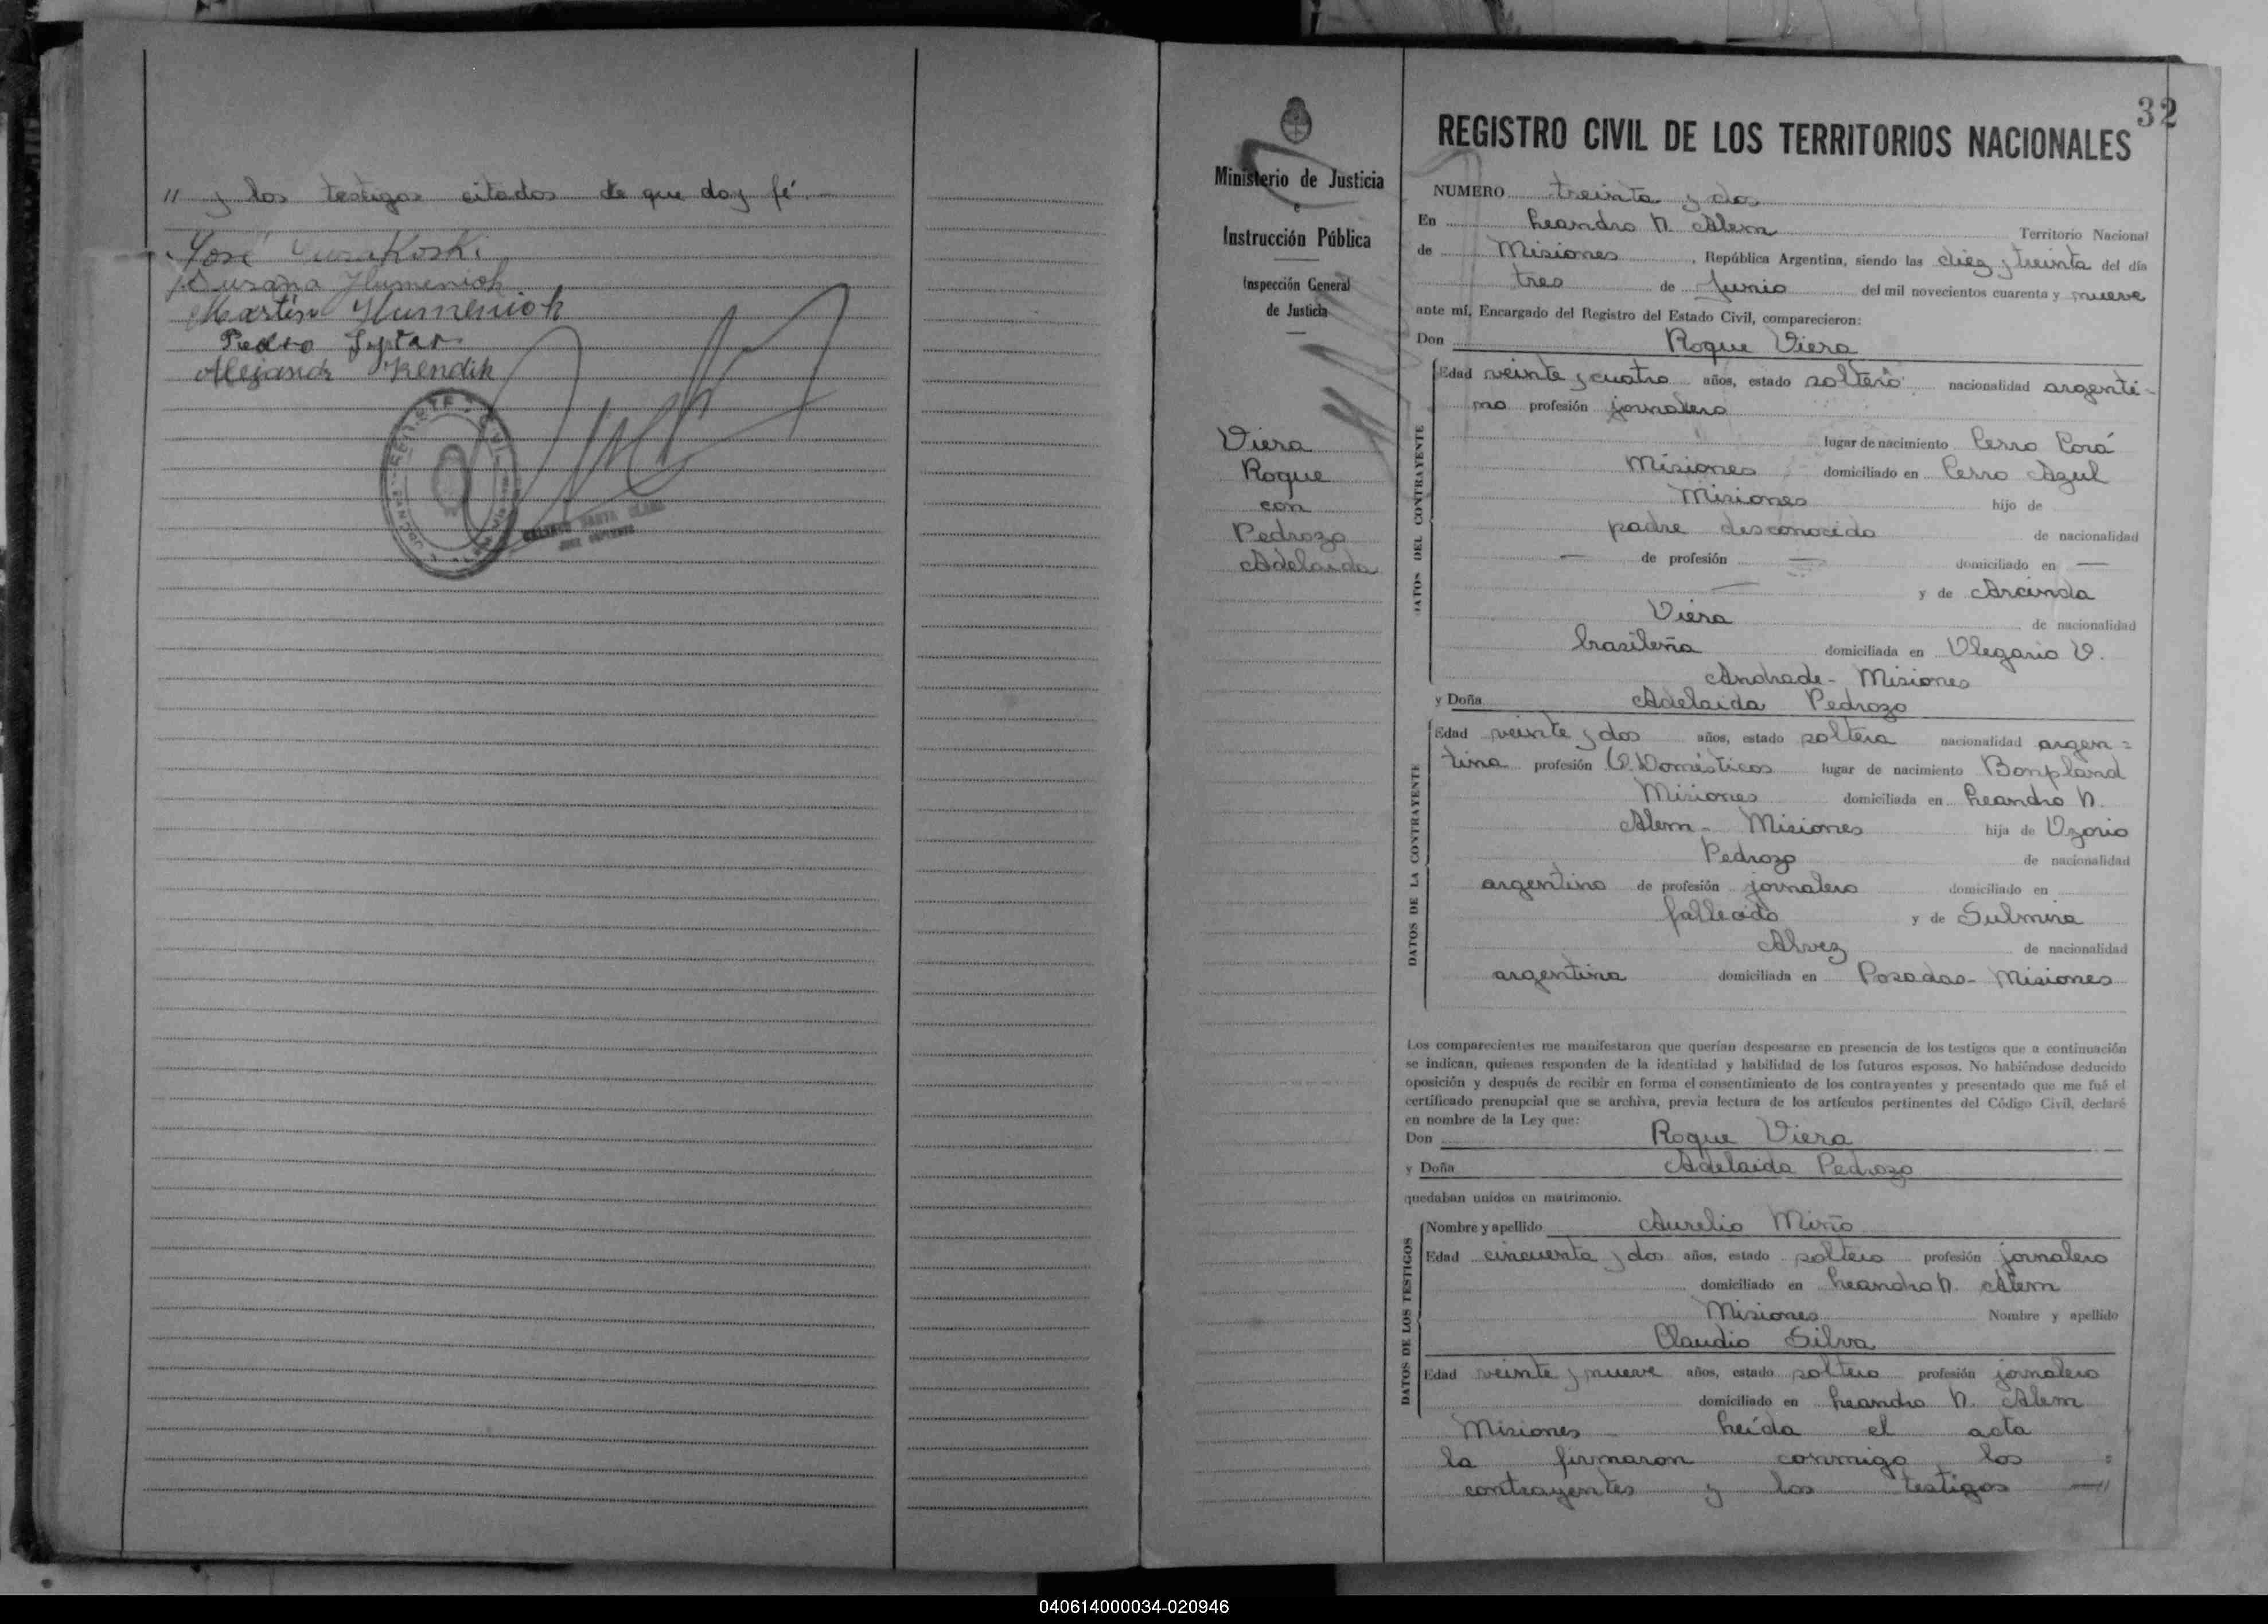 " y los testigos citados de que doy fé.
José
Susana Humeniok
Martín Humeniok
Pedro
Kendik
32
Ministerio de Justicia
e
Instrucción Pública
Inspección General
de Justicia
Viera
Roque
con
Pedrozo
Adelaida
REGISTRO CIVIL DE LOS TERRITORIOS NACIONALES
NUMERO treinta y dos
En Leandro N. Alem Territorio Nacional
de Misiones, República Argentina, siendo las diez y treinta del día
tres de Junio del mil novecientos cuarenta y nueve
ante mí, Encargado del Registro del Estado Civil, comparecieron:
Don Roque Viera
DATOS DEL CONTRAYENTE
Edad veinte y cuatro años, estado soltero nacionalidad argenti-
no profesión jornalero
lugar de nacimiento Cerro Corá
Misiones domiciliado en Cerro Azul
Misiones hijo de
padre desconocido de nacionalidad
— de profesión — domiciliado en —
— y de Arcinda
Viera de nacionalidad
brasileña domiciliada en Olegario V.
Andrade - Misiones
y Doña Adelaida Pedrozo
DATOS DE LA CONTRAYENTE
Edad veinte y dos años, estado soltera nacionalidad argen=
tina profesión Q. Domésticos lugar de nacimiento Bonpland
Misiones domiciliada en Leandro N.
Alem - Misiones hija de Ozorio
Pedrozo de nacionalidad
argentino de profesión jornalero domiciliado en
fallecido y de Sulmira
Alvez de nacionalidad
argentina domiciliada en Posadas - Misiones
Los comparecientes me manifestaron que querían desposarse en presencia de los testigos que a continuación
se indican, quienes responden de la identidad y habilidad de los futuros esposos. No habiéndose deducido
oposición y después de recibir en forma el consentimiento de los contrayentes y presentado que me fué el
certificado prenupcial que se archiva, previa lectura de los artículos pertinentes del Código Civil, declaré
en nombre de la Ley que:
Don Roque Viera
y Doña Adelaida Pedrozo
quedaban unidos en matrimonio.
DATOS DE LOS TESTIGOS
Nombre y apellido Aurelio Miño
Edad cincuenta y dos años, estado soltero profesión jornalero
domiciliado en Leandro N. Alem
Misiones Nombre y apellido
Claudio Silva
Edad veinte y nueve años, estado soltero profesión jornalero
domiciliado en Leandro N. Alem
Misiones Leída el acta
la firmaron conmigo los =
contrayentes y los testigos —"
040614000034-020946